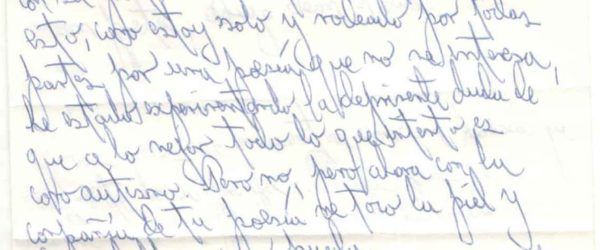 esto, como estoy solo y rodeado por todas
partes por una poesía que no me interesa,
he estado experimentando la deprimente duda de
que a lo mejor todo lo que intento es
como autismo. Pero no, pero ahora con la
compañía de tu poesía me toco la piel y